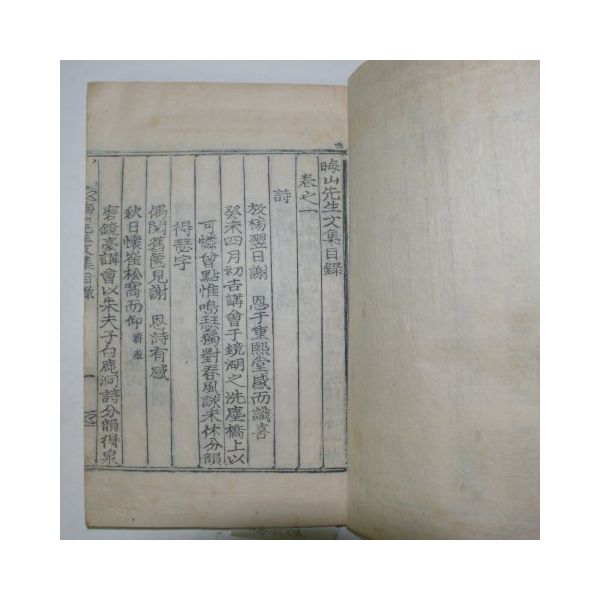 晦山先生文集目錄
卷之一
詩
放榜翌日謝 恩于重熙堂感而識喜
癸未四月初吉講會于鏡湖之洗塵橋上以
可憐曾點惟鳴瑟獨對春風詠未休分韻
得瑟字
偶閱舊篋見謝 恩詩有感
秋日懷崔松窩而仰
磨鏡臺講會以朱夫子白鹿洞詩分韻得泉
先生文集目錄 一